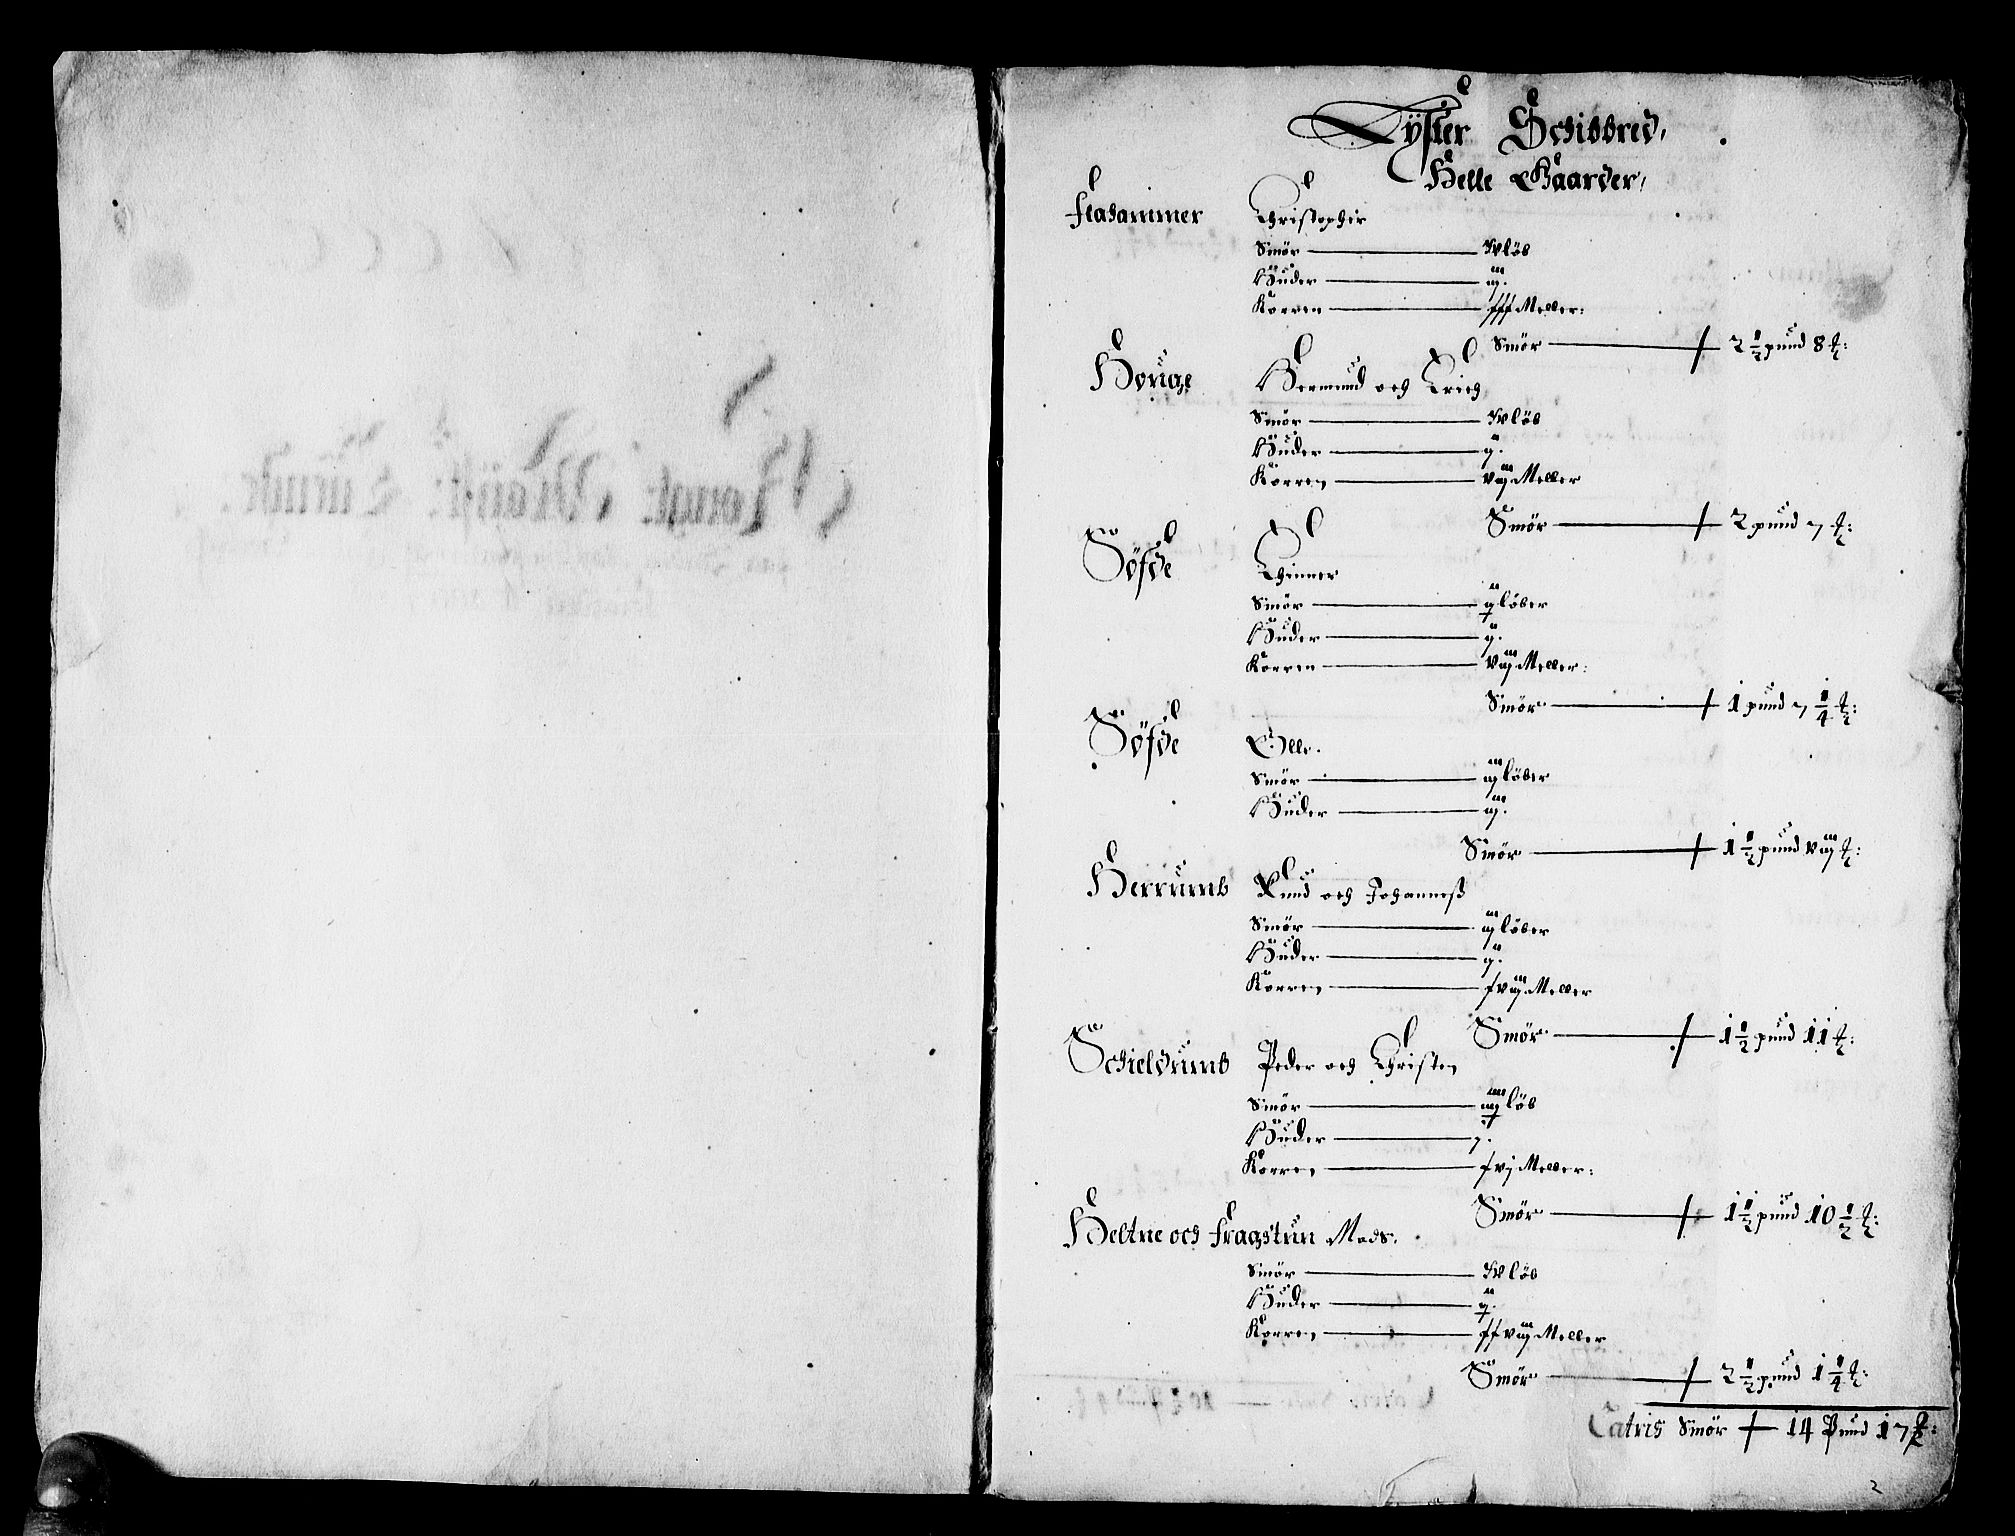 Lÿster Schibbred,
Helle Gaarder,
Flahammer Christopher
Smör — IV löb
Huder — iij.
Korren — fff Meller:
Smör — 2 1/2 pund 8 ℔:
Houge Germund och Erich
Smör — IV löb
Huder — ij.
Korren — viij Meller
Smör — 2 pund 7 ℔:
Söfde Einner
Smör — ij löber
Huder — ij.
Korren — viij Meller:
Smör — 1 pund 7 1/4 ℔:
Söfde Olle.
Smör — iij löber
Huder — iij.
Smör — 1 1/2 pund viij ℔:
Herrumb Knud och Johanneß
Smör — iij löber
Huder — ij.
Korren — f viij Meller
Smör — 1 1/2 pund 11 ℔:
Schieldrumb Peder och Christen
Smör — iiij löb
Huder — j.
Korren — f vj Meller:
Smör — 1 1/2 pund 10 1/2 ℔:
Heltne och Fragstrun Mads.
Smör — IV löb
Huder — ij.
Korren — ff viij Meller
Smör — 2 1/2 pund 1 1/4 ℔:
Latris Smör — 14 Pund 17 ℔:
2